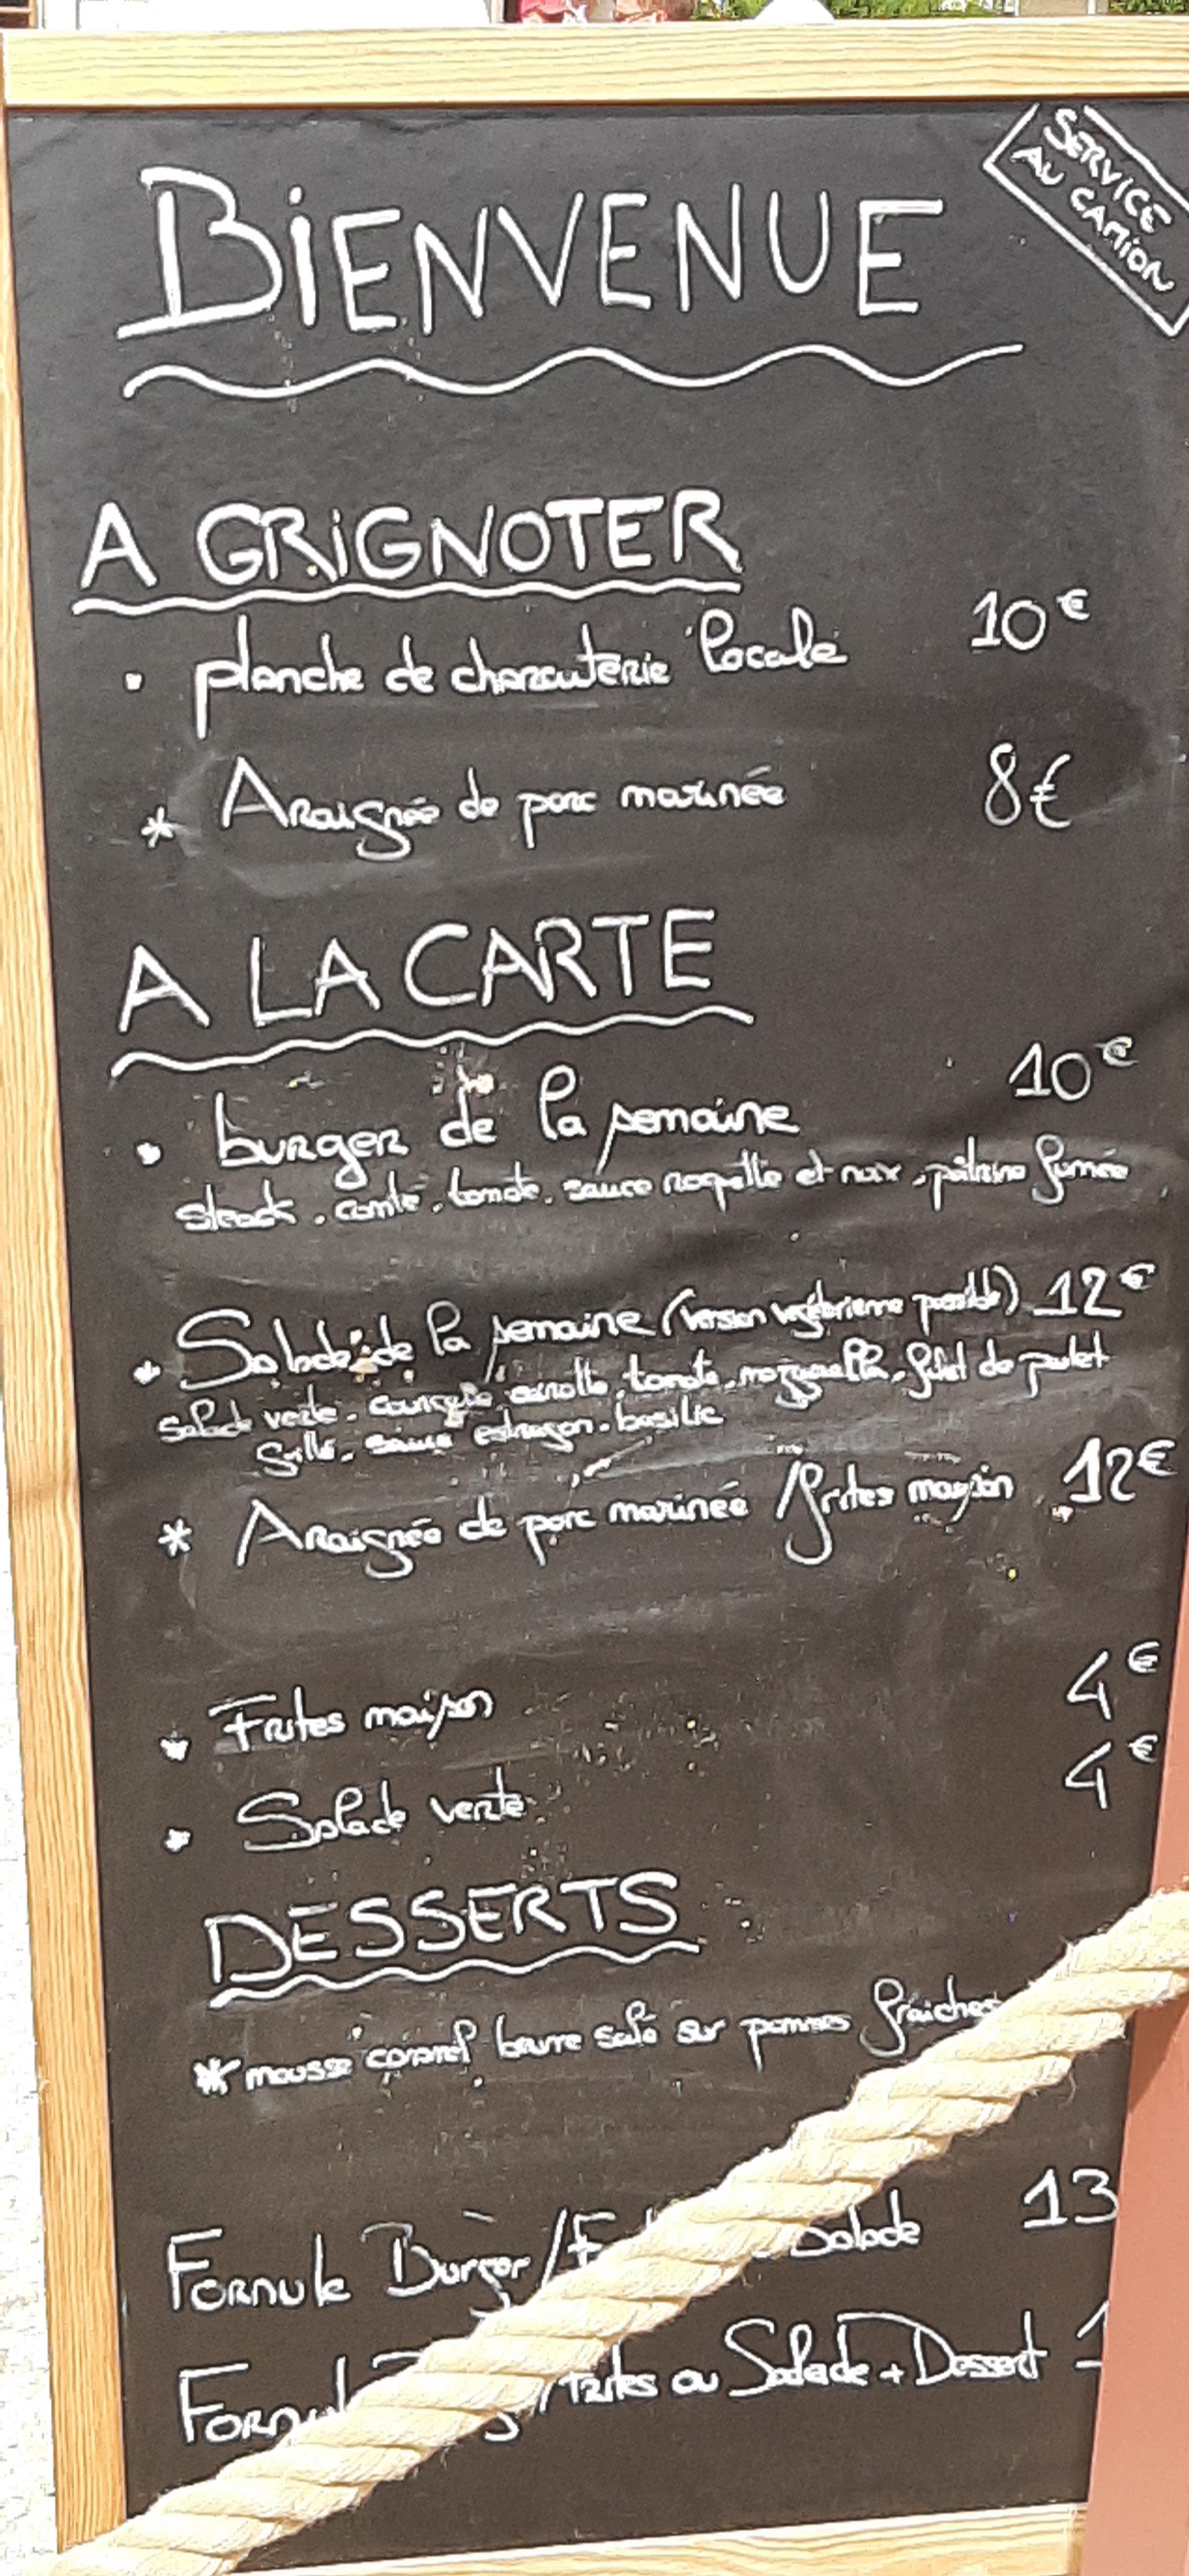 SERVICE
AU CAMION
BiENVENUE
A GRiGNOTER
• planche de charcuterie locale 10€
* Araignée de porc marinée 8€
A LA CARTE
• burger de la semaine 10€
steack. comté. tomate. sauce roquette et noix. poitrine fumée
• Salade de la semaine (version végétarienne possible) 12€
Salade verte. courgette. carotte. tomate. mozzarella. filet de poulet
grillé. sauce estragon. basilic
* Araignée de porc marinée / frites maison 12€
• Frites maison 4€
• Salade verte 4€
DESSERTS
* mousse caramel beurre salé sur pommes fraiches
Formule Burger / Salade 13
ou Salade + Dessert